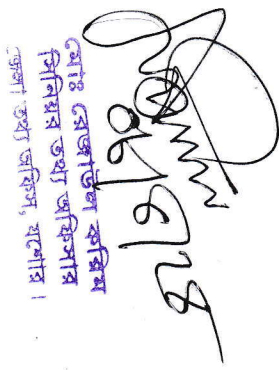 মোঃ রেজাউল করিম
সিনিয়র তথ্য অফিসার
জেলা তথ্য অফিস, যশোর ।